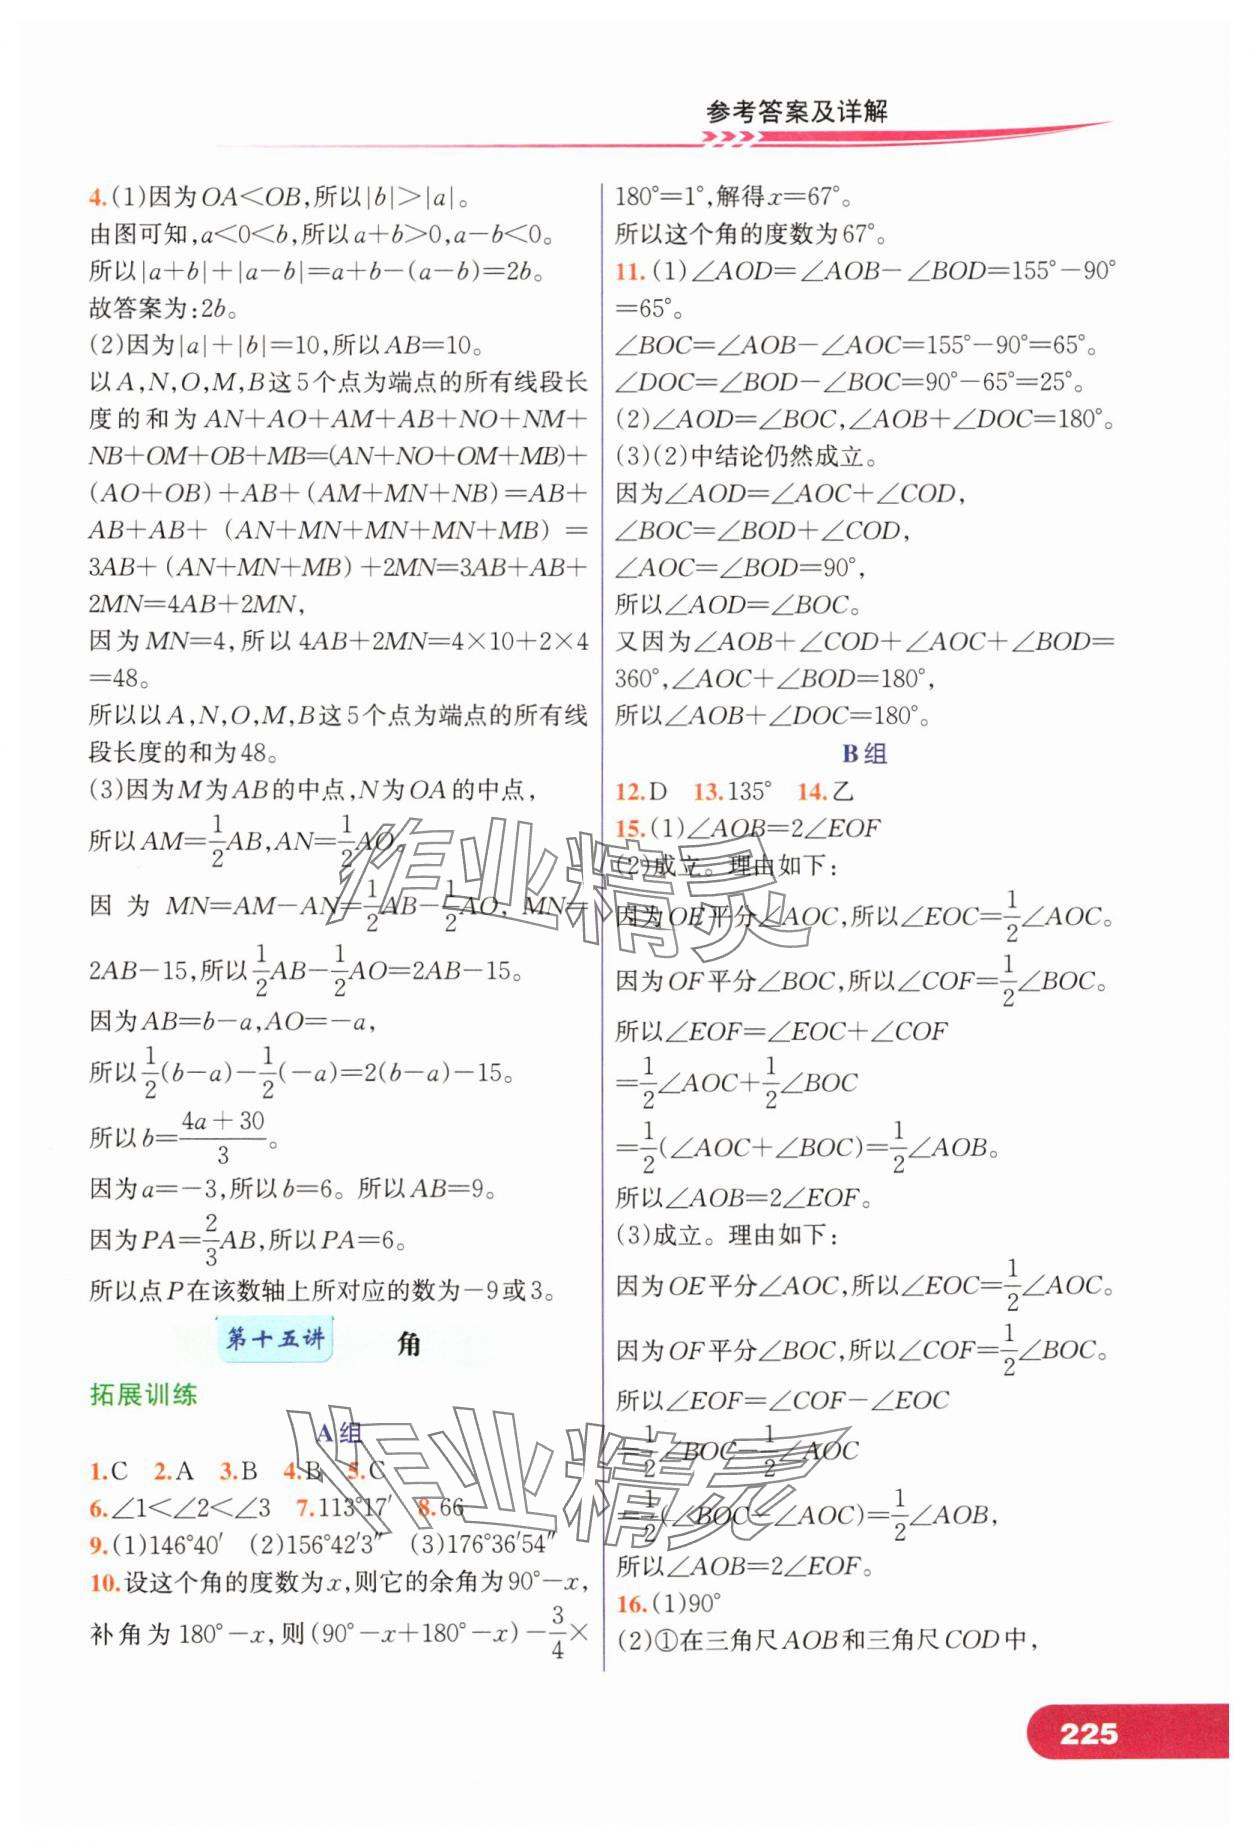 参考答案及详解
4.(1)因为OA<OB,所以|b|>|a|。
由图可知,a<0<b,所以a+b>0,a-b<0。
所以|a+b|+|a-b|=a+b-(a-b)=2b。
故答案为:2b。
(2)因为|a|+|b|=10,所以AB=10。
以A,N,O,M,B这5个点为端点的所有线段长
度的和为AN+AO+AM+AB+NO+NM+
NB+OM+OB+MB=(AN+NO+OM+MB)+
(AO+OB)+AB+(AM+MN+NB)=AB+
AB+AB+(AN+MN+MN+MN+MB)=
3AB+(AN+MN+MB)+2MN=3AB+AB+
2MN=4AB+2MN,
因为MN=4,所以4AB+2MN=4×10+2×4
=48。
所以以A,N,O,M,B这5个点为端点的所有线
段长度的和为48。
(3)因为M为AB的中点,N为OA的中点,
所以AM=1/2AB,AN=1/2AO。
因为MN=AM-AN=1/2AB-1/2AO,MN=
2AB-15,所以1/2AB-1/2AO=2AB-15。
因为AB=b-a,AO=-a,
所以1/2(b-a)-1/2(-a)=2(b-a)-15。
所以b=(4a+30)/3。
因为a=-3,所以b=6。所以AB=9。
因为PA=2/3AB,所以PA=6。
所以点P在该数轴上所对应的数为-9或3。
第十五讲 角
拓展训练
A组
1.C 2.A 3.B 4.B 5.C
6.∠1<∠2<∠3 7.113°17′ 8.66
9.(1)146°40′ (2)156°42′3″ (3)176°36′54″
10.设这个角的度数为x,则它的余角为90°-x,
补角为180°-x,则(90°-x+180°-x)-3/4×
180°=1°,解得x=67°。
所以这个角的度数为67°。
11.(1)∠AOD=∠AOB-∠BOD=155°-90°
=65°。
∠BOC=∠AOB-∠AOC=155°-90°=65°。
∠DOC=∠BOD-∠BOC=90°-65°=25°。
(2)∠AOD=∠BOC,∠AOB+∠DOC=180°。
(3)(2)中结论仍然成立。
因为∠AOD=∠AOC+∠COD,
∠BOC=∠BOD+∠COD,
∠AOC=∠BOD=90°,
所以∠AOD=∠BOC。
又因为∠AOB+∠COD+∠AOC+∠BOD=
360°,∠AOC+∠BOD=180°,
所以∠AOB+∠DOC=180°。
B组
12.D 13.135° 14.乙
15.(1)∠AOB=2∠EOF
(2)成立。理由如下:
因为OE平分∠AOC,所以∠EOC=1/2∠AOC。
因为OF平分∠BOC,所以∠COF=1/2∠BOC。
所以∠EOF=∠EOC+∠COF
=1/2∠AOC+1/2∠BOC
=1/2(∠AOC+∠BOC)=1/2∠AOB。
所以∠AOB=2∠EOF。
(3)成立。理由如下:
因为OE平分∠AOC,所以∠EOC=1/2∠AOC。
因为OF平分∠BOC,所以∠COF=1/2∠BOC。
所以∠EOF=∠COF-∠EOC
=1/2∠BOC-1/2∠AOC
=1/2(∠BOC-∠AOC)=1/2∠AOB,
所以∠AOB=2∠EOF。
16.(1)90°
(2)①在三角尺AOB和三角尺COD中,
225
作业精灵
作业精灵